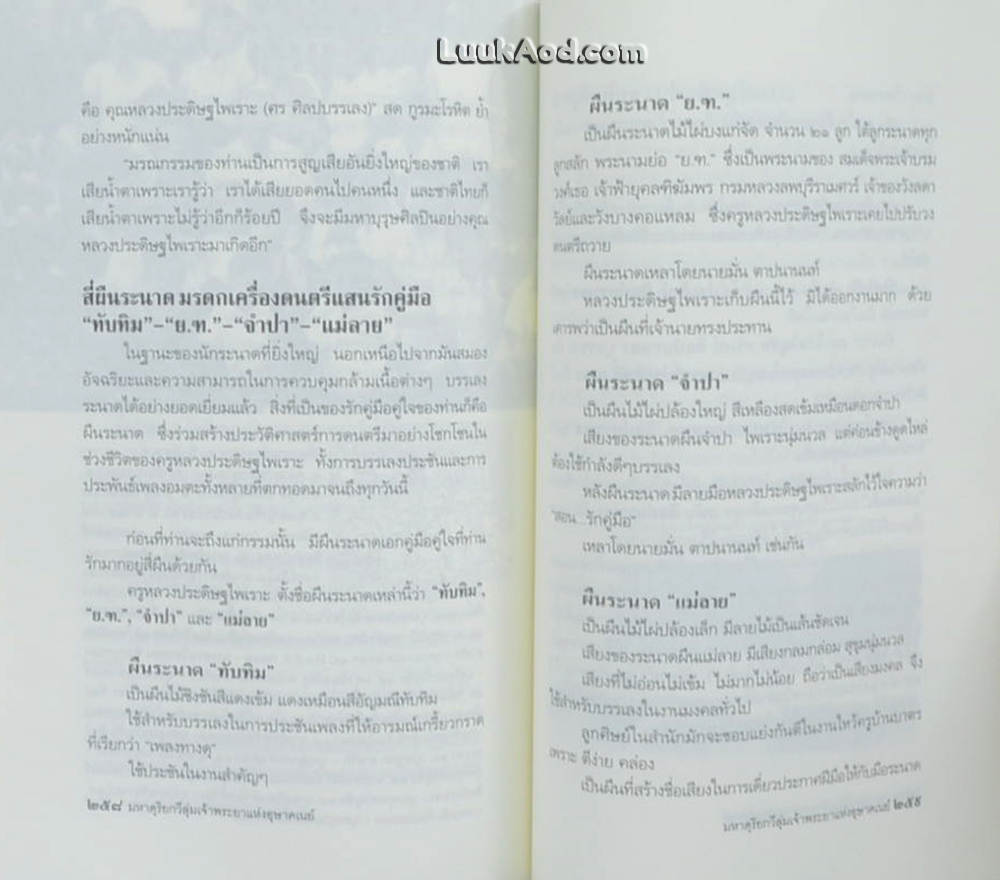 LuukAod.com
คือ คุณหลวงประดิษฐไพเราะ (ศร ศิลปบรรเลง)" สด กูรมะโรหิต ย้ำ
อย่างหนักแน่น
"มรณกรรมของท่านเป็นการสูญเสียอันยิ่งใหญ่ของชาติ เรา
เสียน้ำตาเพราะเรารู้ว่า เราได้เสียยอดคนไปคนหนึ่ง และชาติไทยก็
เสียน้ำตาเพราะไม่รู้ว่าอีกกี่ร้อยปี จึงจะมีมหาบุรุษศิลปินอย่างคุณ
หลวงประดิษฐไพเราะมาเกิดอีก"
สี่ผืนระนาด มรดกเครื่องดนตรีแสนรักคู่มือ
"ทับทิม"–"ย.ฑ."–"จำปา"–"แม่ลาย"
ในฐานะของนักระนาดที่ยิ่งใหญ่ นอกเหนือไปจากมันสมอง
อัจฉริยะและความสามารถในการควบคุมกล้ามเนื้อต่างๆ บรรเลง
ระนาดได้อย่างยอดเยี่ยมแล้ว สิ่งที่เป็นของรักคู่มือคู่ใจของท่านก็คือ
ผืนระนาด ซึ่งร่วมสร้างประวัติศาสตร์การดนตรีมาอย่างโชกโชนใน
ช่วงชีวิตของครูหลวงประดิษฐไพเราะ ทั้งการบรรเลงประชันและการ
ประพันธ์เพลงอมตะทั้งหลายที่ตกทอดมาจนถึงทุกวันนี้
ก่อนที่ท่านจะถึงแก่กรรมนั้น มีผืนระนาดเอกคู่มือคู่ใจที่ท่าน
รักมากอยู่สี่ผืนด้วยกัน
ครูหลวงประดิษฐไพเราะ ตั้งชื่อผืนระนาดเหล่านี้ว่า "ทับทิม",
"ย.ฑ.", "จำปา" และ "แม่ลาย"
ผืนระนาด "ทับทิม"
เป็นผืนไม้ชิงชันสีแดงเข้ม แดงเหมือนสีอัญมณีทับทิม
ใช้สำหรับบรรเลงในการประชันเพลงที่ให้อารมณ์เกรี้ยวกราด
ที่เรียกว่า "เพลงทางดุ"
ใช้ประชันในงานสำคัญๆ
๒๕๘ มหาดุริยกวีลุ่มเจ้าพระยาแห่งอุษาคเนย์
ผืนระนาด "ย.ฑ."
เป็นผืนระนาดไม้ไผ่บงแก่จัด จำนวน ๒๑ ลูก ใต้ลูกระนาดทุก
ลูกสลัก พระนามย่อ "ย.ฑ." ซึ่งเป็นพระนามของ สมเด็จพระเจ้าบรม
วงศ์เธอ เจ้าฟ้ายุคลฑิฆัมพร กรมหลวงลพบุรีราเมศวร์ เจ้าของวังลดา
วัลย์และวังบางคอแหลม ซึ่งครูหลวงประดิษฐไพเราะเคยไปปรับวง
ดนตรีถวาย
ผืนระนาดเหลาโดยนายมั่น ตาปนานนท์
หลวงประดิษฐไพเราะเก็บผืนนี้ไว้ มิได้ออกงานมาก ด้วย
เคารพว่าเป็นผืนที่เจ้านายทรงประทาน
ผืนระนาด "จำปา"
เป็นผืนไม้ไผ่ปล้องใหญ่ สีเหลืองสดเข้มเหมือนดอกจำปา
เสียงของระนาดผืนจำปา ไพเราะนุ่มนวล แต่ค่อนข้างดูดไหล่
ต้องใช้กำลังดีๆบรรเลง
หลังผืนระนาด มีลายมือหลวงประดิษฐไพเราะสลักไว้ใจความว่า
"สอน...รักคู่มือ"
เหลาโดยนายมั่น ตาปนานนท์ เช่นกัน
ผืนระนาด "แม่ลาย"
เป็นผืนไม้ไผ่ปล้องเล็ก มีลายไม้เป็นเส้นชัดเจน
เสียงของระนาดผืนแม่ลาย มีเสียงกลมกล่อม สุขุมนุ่มนวล
เสียงที่ไม่อ่อนไม่เข้ม ไม่มากไม่น้อย ถือว่าเป็นเสียงมงคล จึง
ใช้สำหรับบรรเลงในงานมงคลทั่วไป
ลูกศิษย์ในสำนักมักจะชอบแย่งกันตีในงานไหว้ครูบ้านบาตร
เพราะ ตีง่าย คล่อง
เป็นผืนที่สร้างชื่อเสียงในการเดี่ยวประกาศฝีมือให้กับมือระนาด
มหาดุริยกวีลุ่มเจ้าพระยาแห่งอุษาคเนย์ ๒๕๙